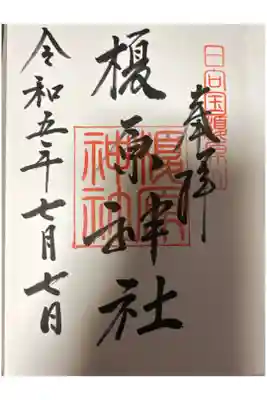 日向国榎原
奉拝
榎原神社
榎原
神社
令和五年七月七日